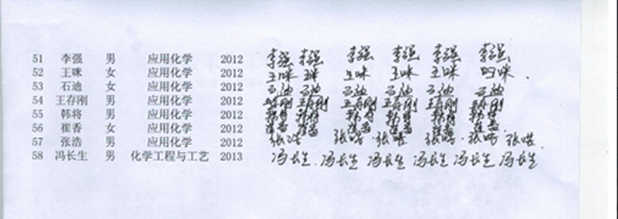 51 李强 男 应用化学 2012 李强 李强 李强 李强 李强 李强
52 王咪 女 应用化学 2012 王咪 王咪 王咪 王咪
53 石迪 女 应用化学 2012 石迪 石迪 石迪 石迪 石迪 石迪
54 王存刚 男 应用化学 2012 王存刚 王存刚 王存刚 王存刚 王存刚
55 韩将 男 应用化学 2012
56 崔香 女 应用化学 2012
57 张浩 男 应用化学 2012 张浩 张浩 张浩 张浩 张浩
58 冯长生 男 化学工程与工艺 2013 冯长生 冯长生 冯长生 冯长生 冯长生 冯长生